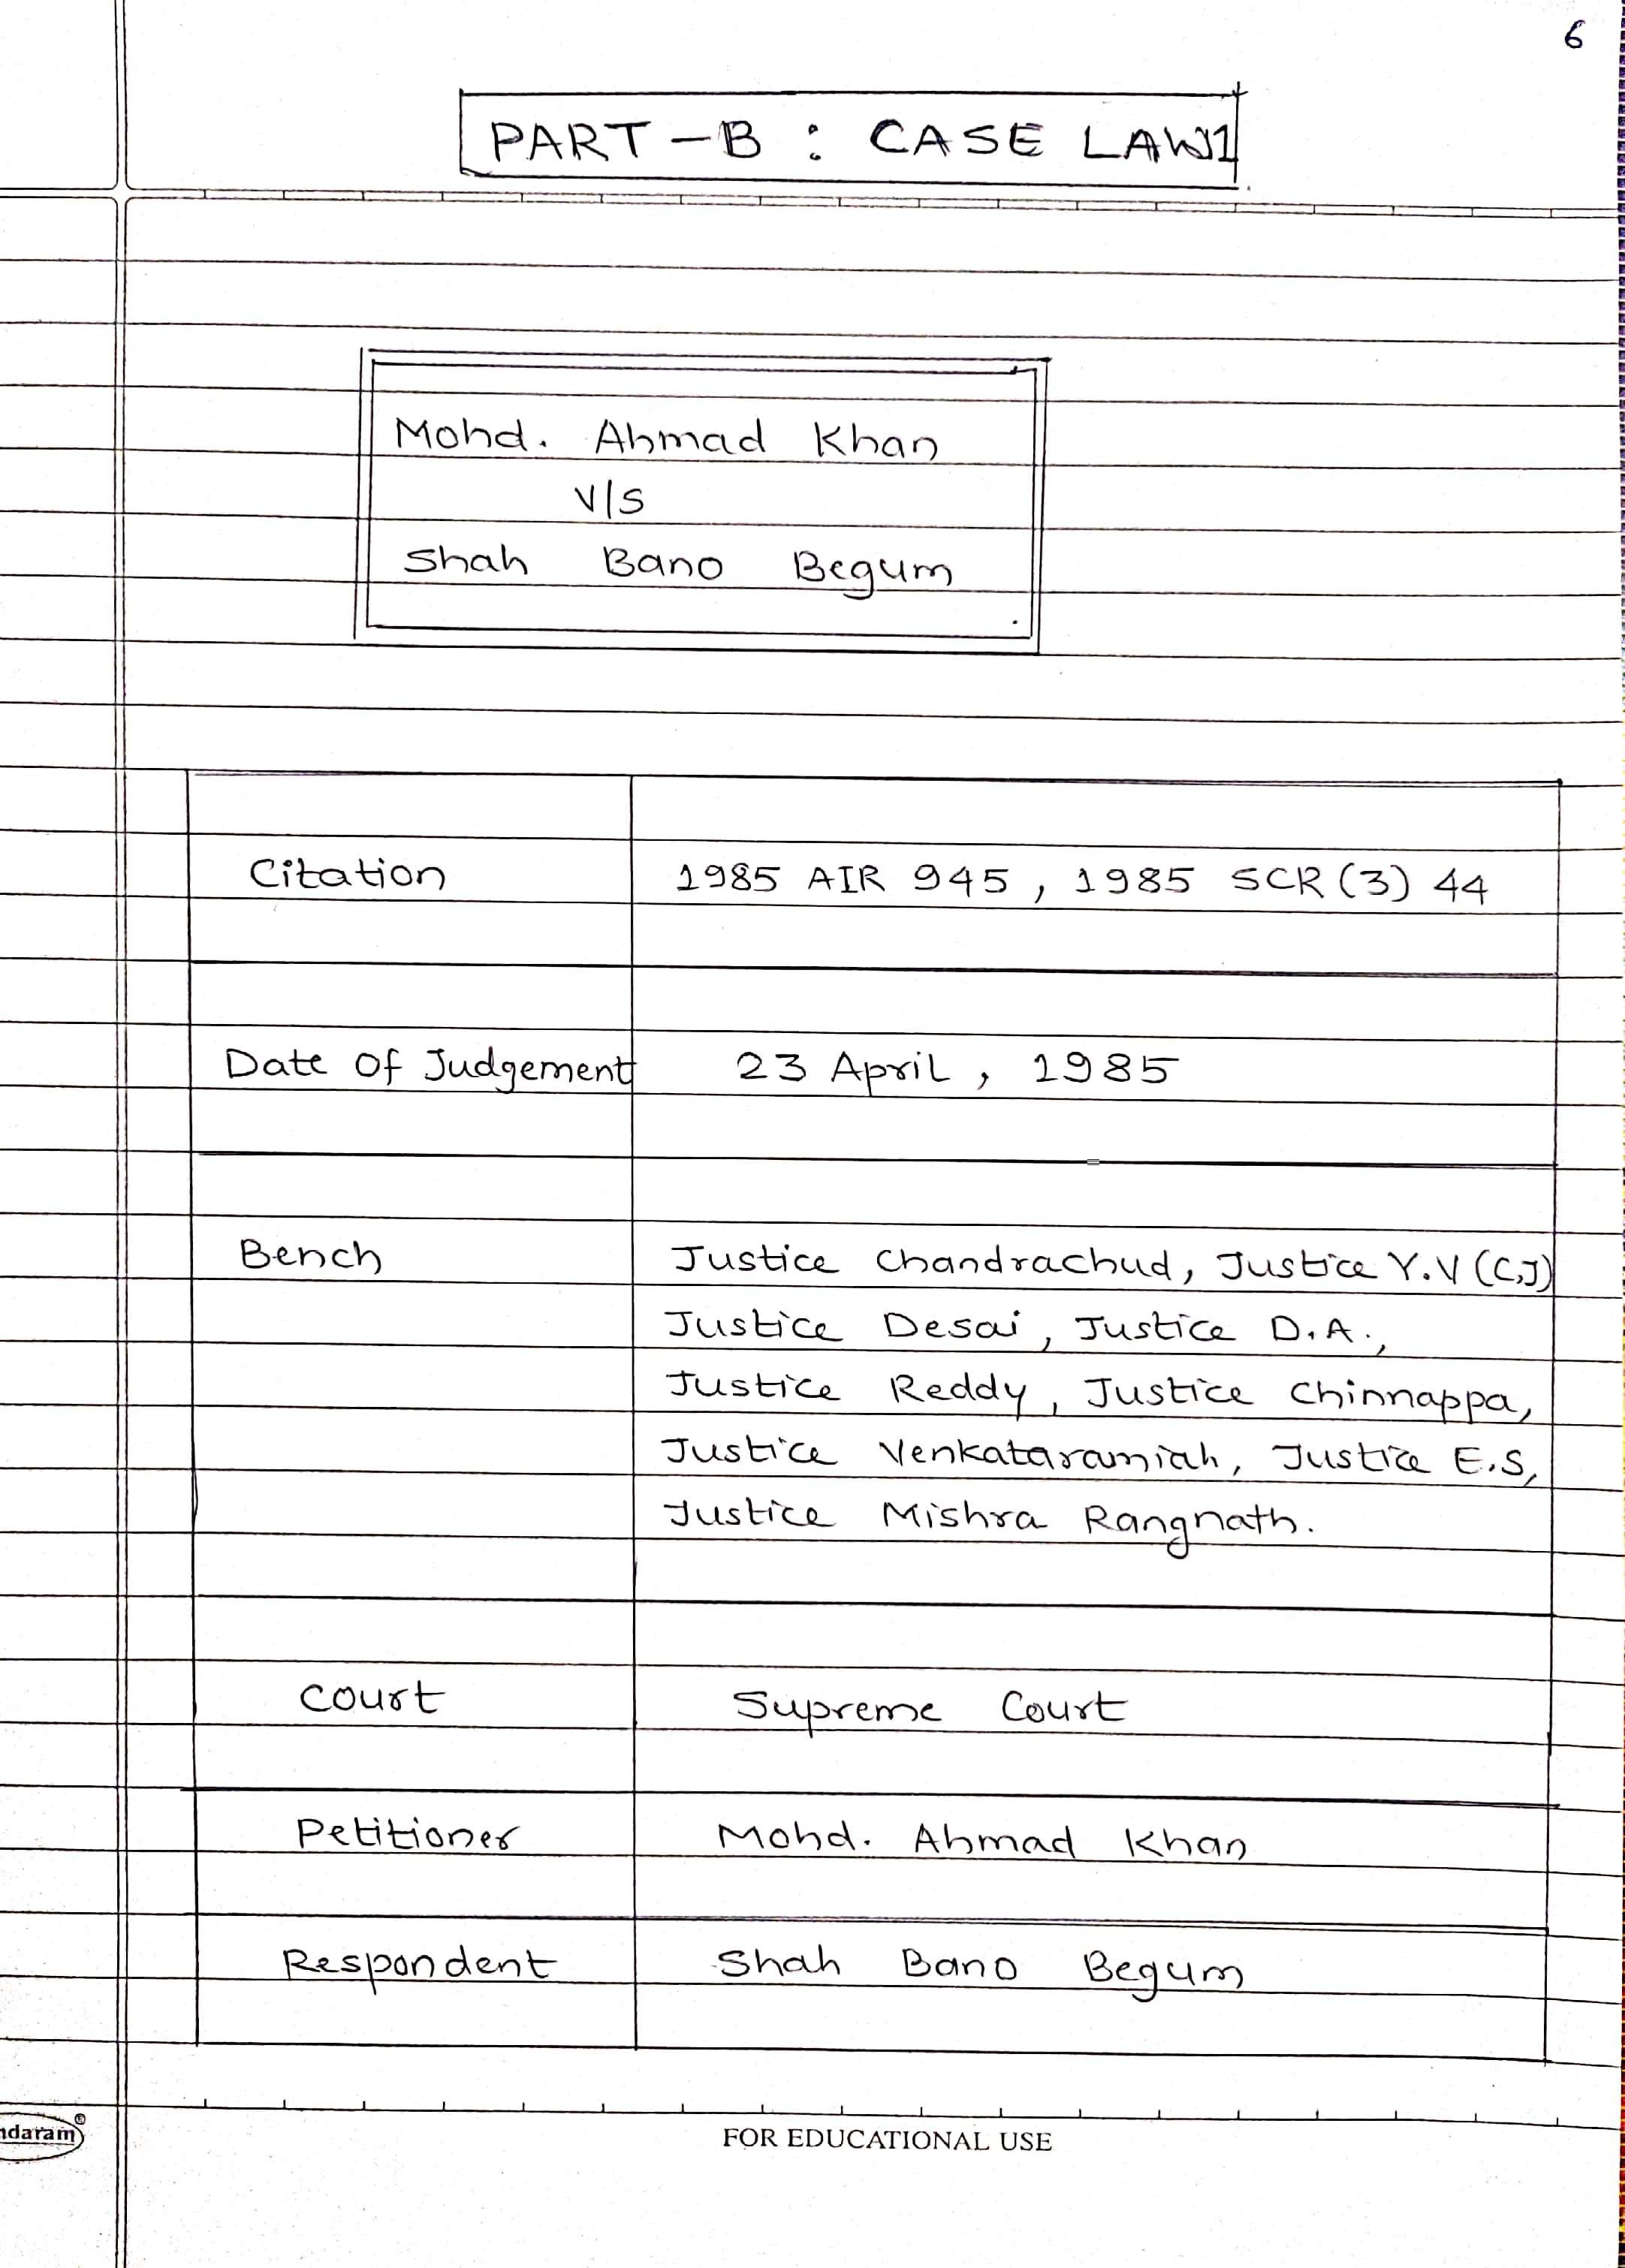 6
PART-B : CASE LAW1
Mohd. Ahmad Khan
V/S
Shah Bano Begum
Citation 1985 AIR 945, 1985 SCR (3) 44
Date Of Judgement 23 April, 1985
Bench Justice Chandrachud, Justice Y.V (C,J)
Justice Desai, Justice D.A.,
Justice Reddy, Justice Chinnappa,
Justice Venkataramiah, Justice E.S,
Justice Mishra Rangnath.
Court Supreme Court
Petitioner Mohd. Ahmad Khan
Respondent Shah Bano Begum
ndaram®
FOR EDUCATIONAL USE